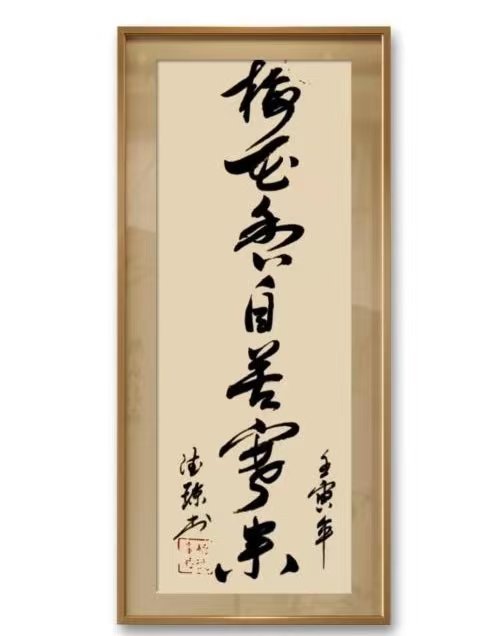 梅花香自苦寒来
壬寅年
德琼书